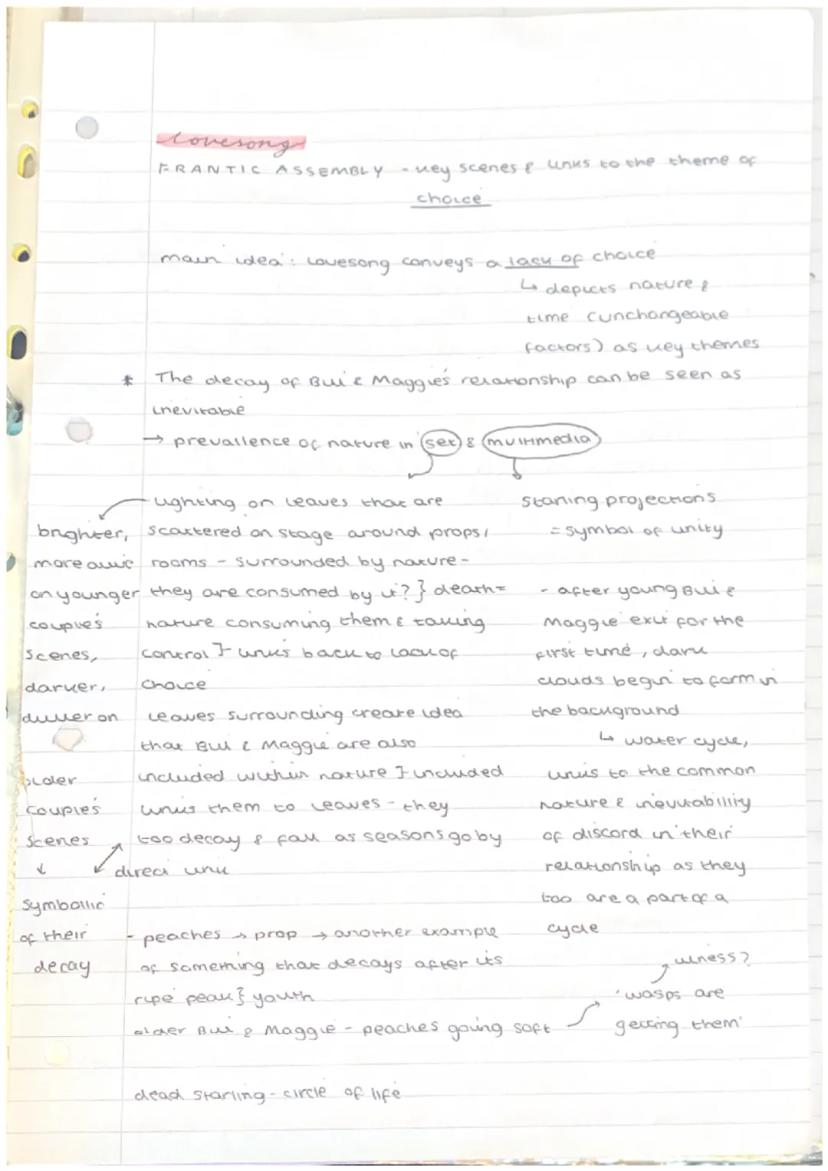 Lovesong
FRANTIC ASSEMBLY - key scenes & links to the theme of
choice
main idea: Lovesong conveys a lack of choice
↳ depicts nature &
time (unchangeable
factors) as key themes
* The decay of Bill & Maggie's relationship can be seen as
inevitable
→ prevallence of nature in set & multimedia
Lighting on leaves that are
scattered on stage around props/
rooms - surrounded by nature -
they are consumed by it? } death =
nature consuming them & taking
control } links back to lack of
choice
leaves surrounding create idea
that Bill & Maggie are also
included within nature } included
links them to leaves - they
too decay & fall as seasons go by
direct link
brighter,
more
on younger
couple's
scenes,
darker,
duller on
older
couple's
scenes
↓
symbollic
of their
decay
starling projections
= symbol of unity
- after young Bill &
Maggie exit for the
first time, dark
clouds begin to form in
the background
↳ water cycle,
links to the common
nature & inevitability
of discord in their
relationship as they
too are a part of a
cycle
- peaches → prop → another example
of something that decays after its
ripe peak } youth
older Bill & Maggie - peaches going soft
illness?
'wasps are
getting them'
dead starling - circle of life